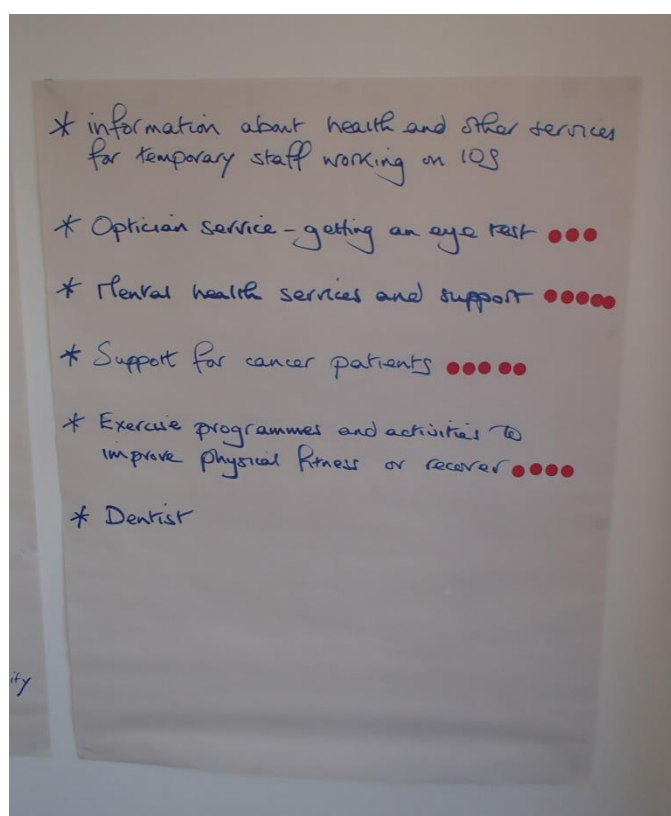 * information about health and other services
for temporary staff working on IOS
* Optician service - getting an eye test
* Mental health services and support
* Support for cancer patients
* Exercise programmes and activities to
improve physical fitness or recover
* Dentist
ity